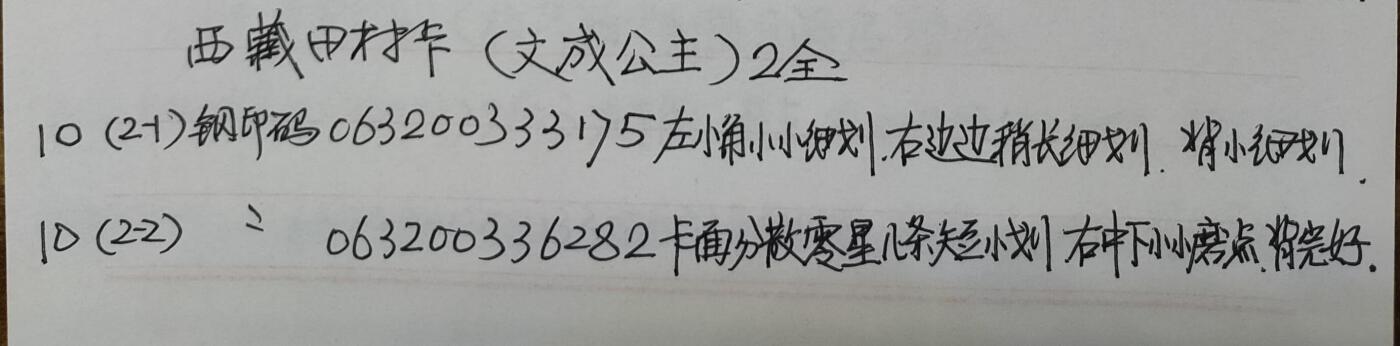 西藏田村卡（文成公主）2全
10（2-1）钢印码063200333175左小角小小细划.右边边稍长细划.背小细划.
10（2-2） 〃 063200336282卡面分散零星几条短小划 右中下小小磨点.背完好.